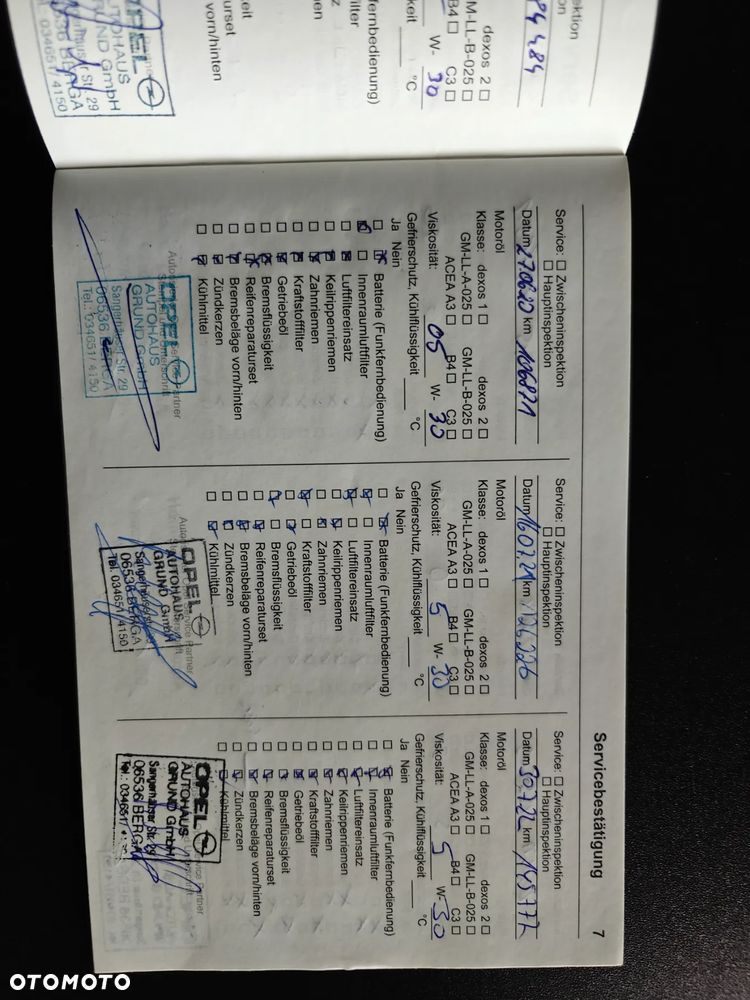 pektion
ektion
84 484
dexos 2 ☐
M-LL-B-025 ☐
B4 ☐ C3 ☐
W- 30
keit ____ °C
kfernbedienung)
filter
atz
emen
raturset
vorn/hinten
keit
OPEL
AUTOHAUS
GRUND GmbH
Str. 29
BERGA
034651/4150
Servicebestätigung 7
Service: ☐ Zwischeninspektion
☐ Hauptinspektion
Datum km 106871
Motoröl
Klasse: dexos 1 ☐ dexos 2 ☐
GM-LL-A-025 ☐ GM-LL-B-025 ☐
ACEA A3 ☐ B4 ☐ C3 ☐
Viskosität: 05 W- 30
Gefrierschutz, Kühlflüssigkeit ____ °C
Ja Nein
Batterie (Funkfernbedienung)
Innenraumluftfilter
Luftfiltereinsatz
Keilrippenriemen
Zahnriemen
Kraftstofffilter
Getriebeöl
Bremsflüssigkeit
Reifenreparaturset
Bremsbeläge vorn/hinten
Zündkerzen
Kühlmittel
OPEL
AUTOHAUS
GRUND GmbH
Sangerhäuser Str. 29
06536 BERGA
Tel.: 034651/4150
Service: ☐ Zwischeninspektion
☐ Hauptinspektion
Datum 160721 km 126226
Motoröl
Klasse: dexos 1 ☐ dexos 2 ☐
GM-LL-A-025 ☐ GM-LL-B-025 ☐
ACEA A3 ☐ B4 ☐ C3 ☐
Viskosität: 5 W- 30
Gefrierschutz, Kühlflüssigkeit ____ °C
Ja Nein
Batterie (Funkfernbedienung)
Innenraumluftfilter
Luftfiltereinsatz
Keilrippenriemen
Zahnriemen
Kraftstofffilter
Getriebeöl
Bremsflüssigkeit
Reifenreparaturset
Bremsbeläge vorn/hinten
Zündkerzen
Kühlmittel
OPEL
AUTOHAUS
GRUND GmbH
06536 BERGA
Tel. 034651/4150
Service: ☐ Zwischeninspektion
☐ Hauptinspektion
Datum 30722 km 145772
Motoröl
Klasse: dexos 1 ☐ dexos 2 ☐
GM-LL-A-025 ☐ GM-LL-B-025 ☐
ACEA A3 ☐ B4 ☐ C3 ☐
Viskosität: 5 W- 30
Gefrierschutz, Kühlflüssigkeit ____ °C
Ja Nein
Batterie (Funkfernbedienung)
Innenraumluftfilter
Luftfiltereinsatz
Keilrippenriemen
Zahnriemen
Kraftstofffilter
Getriebeöl
Bremsflüssigkeit
Reifenreparaturset
Bremsbeläge vorn/hinten
Zündkerzen
Kühlmittel
OPEL
AUTOHAUS
GRUND GmbH
Sangerhäuser Str. 29
06536 BERGA
Tel.: 034651/
OTOMOTO